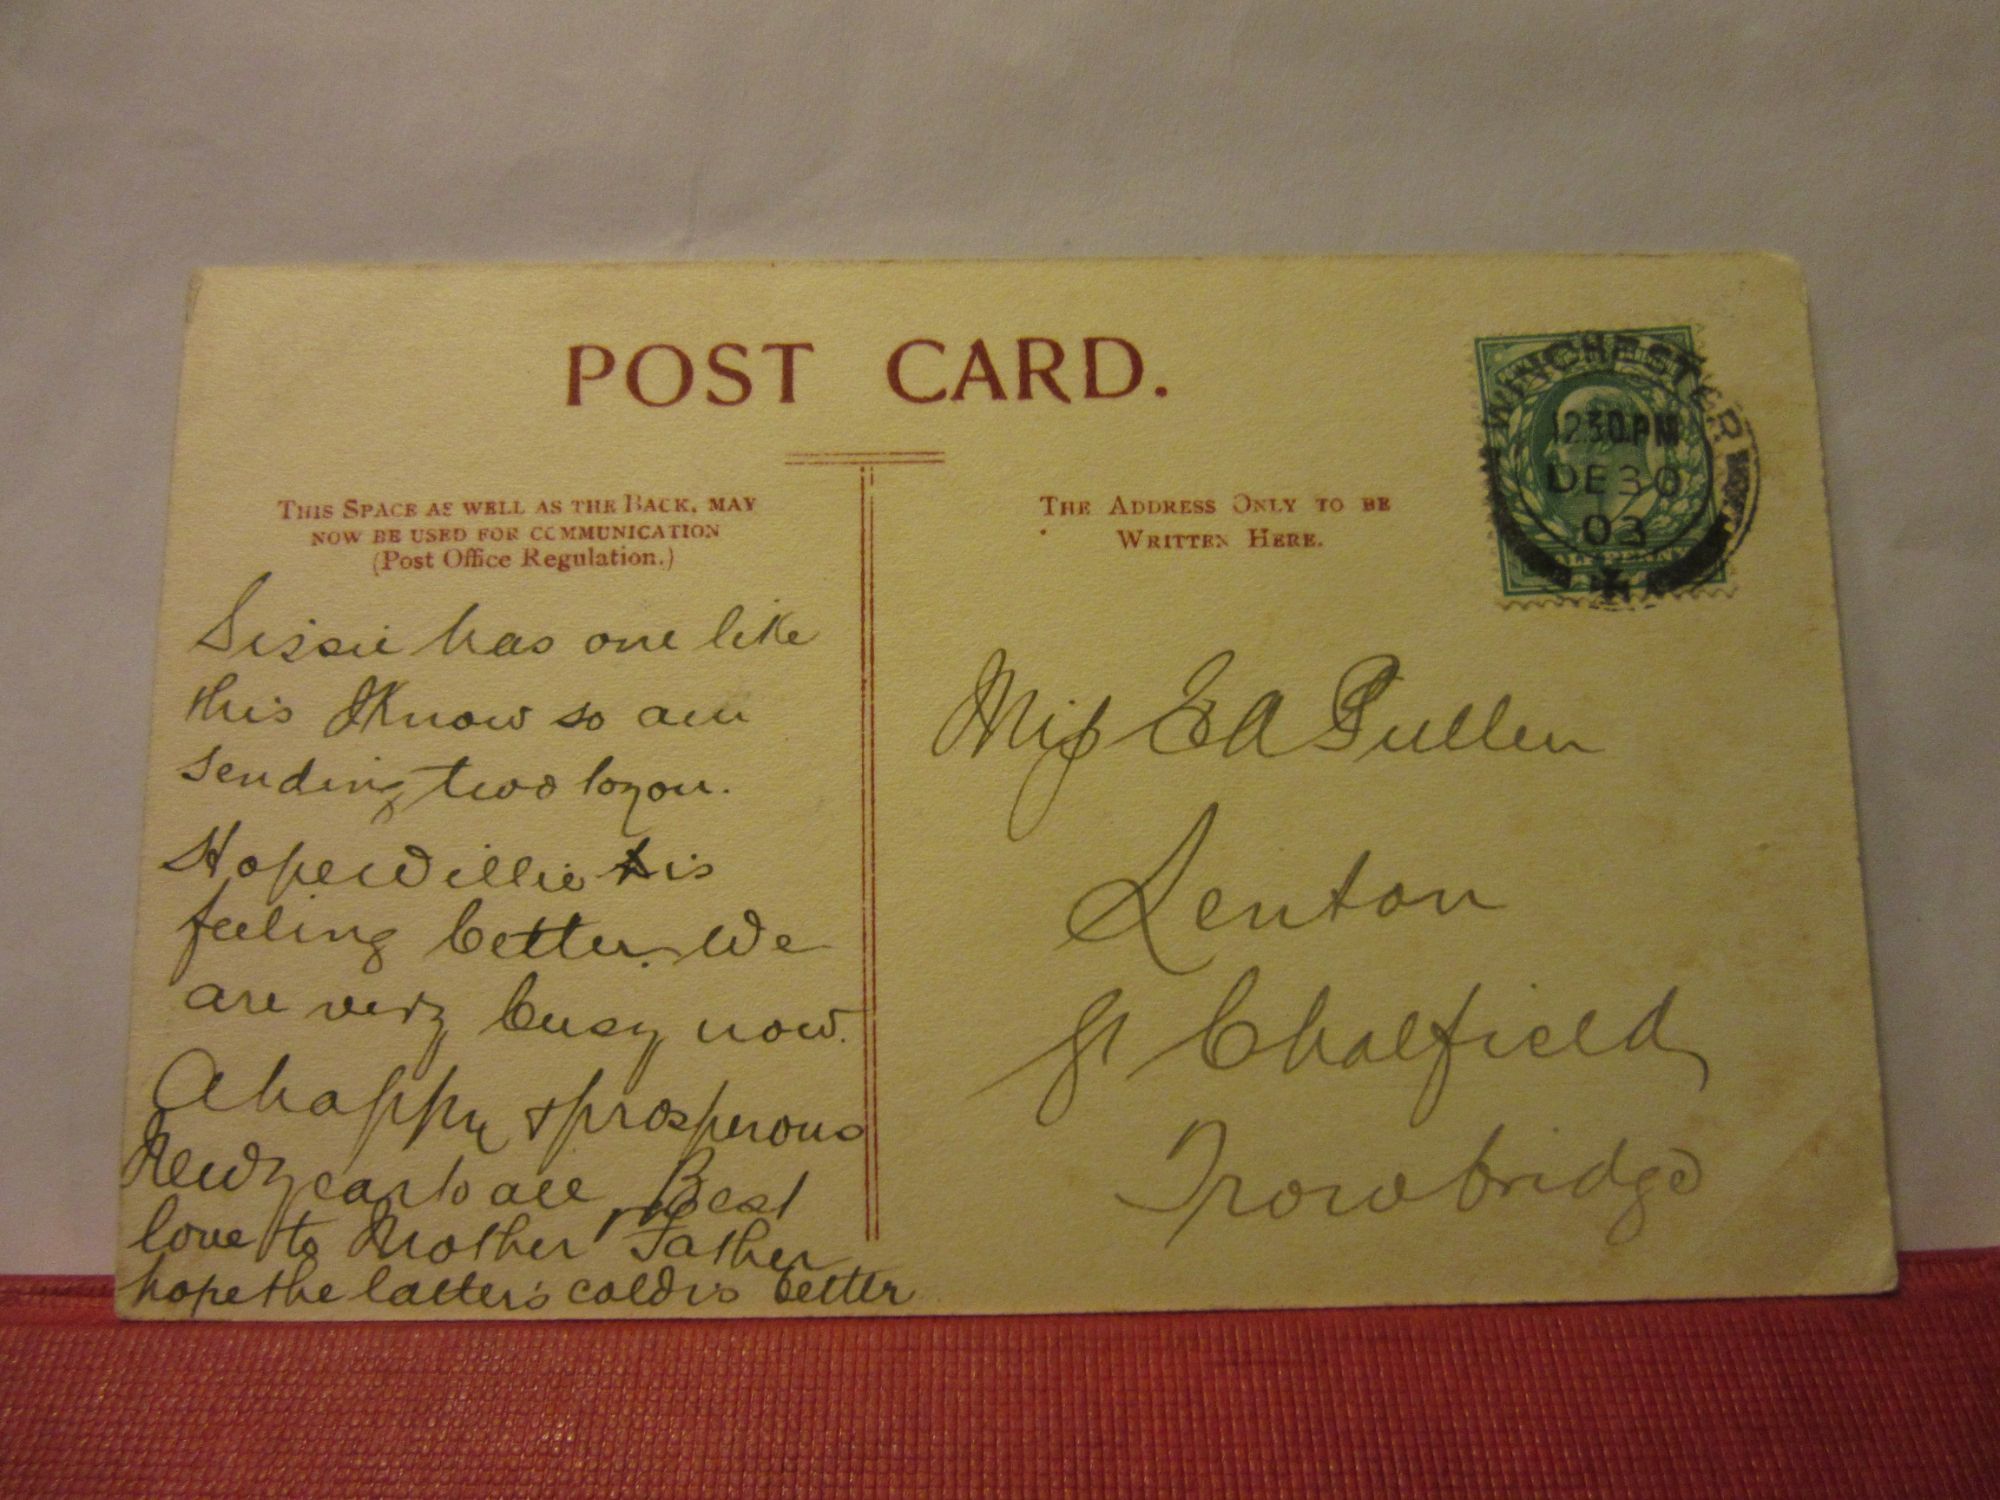 POST CARD.
THIS SPACE AS WELL AS THE BACK, MAY
NOW BE USED FOR COMMUNICATION
(Post Office Regulation.)
THE ADDRESS ONLY TO BE
WRITTEN HERE.
WINCHESTER
12.30.PM
DE 30
03
Sissie has one like
this I Know so am
sending two to you.
Hope Willie is
feeling better. We
are very busy now.
A happy & prosperous
New Year to all Best
love to Mother Father
hope the latter's cold is better
Miss E A Pullen
Lenton
Gt Chalfield
Trowbridge